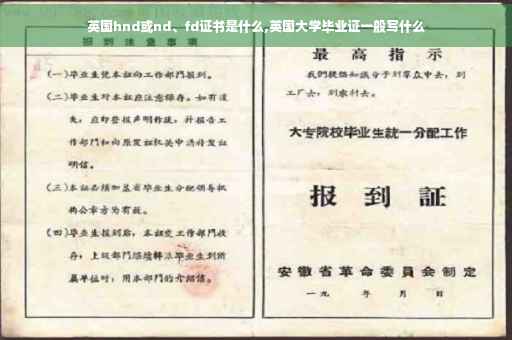 英国hnd或nd、fd证书是什么,英国大学毕业证一般写什么
报到注意事项
(一)毕业生凭本证向工作部门报到。
(二)毕业生对本证应注意保存。如有遗
失,应即登报声明作废,并报告工
作部门和向原发证机关申请补发证
明信。
(三)本证必须加盖省毕业生分配领导机
构公章方为有效。
(四)毕业生报到后,本证交工作部门收
存;上级部门
属单位时,用本部门的介绍信。
最高指示
我们提倡知识分子到群众中去,到
工厂去,到农村去。
大专院校毕业生統一分配工作
报到証
安徽省革命委員会制定
一九 年 月 日